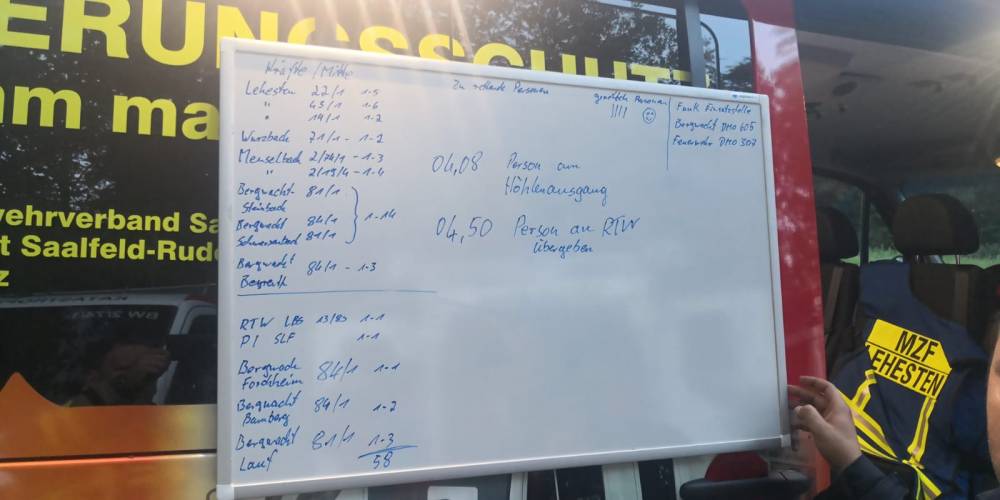 ERUNGSSCHUT
am ma
wehrverband Sa
t Saalfeld-Rudo
z
Kräfte/Mittel
Lehesten 22/1 1-5
" 45/1 1-6
" 14/1 1-2
Wurzbach 71/1 - 1-2
Meuselbach 2/74/1 - 1-3
" 2/19/4 - 1-4
Bergwacht 81/1
Steinbach
Bergwacht 84/1 1-14
Schwarzenbach 81/1
Bergwacht 84/1 - 1-3
Bayreuth
RTW LBS 13/83 1-1
PI SLF 1-1
Bergwach 84/1 1-1
Forchheim
Bergwacht 84/1 1-2
Bamberg
Bergwacht 81/1 1-3
Lauf 58
Zu rettende Personen
gerettete Personen
||||
04,08 Person am
Höhlenausgang
04,50 Person an RTW
übergeben
Funk Einsatzstelle
Bergwacht DMO 605
Feuerwehr DMO 307
MZF
LEHESTEN